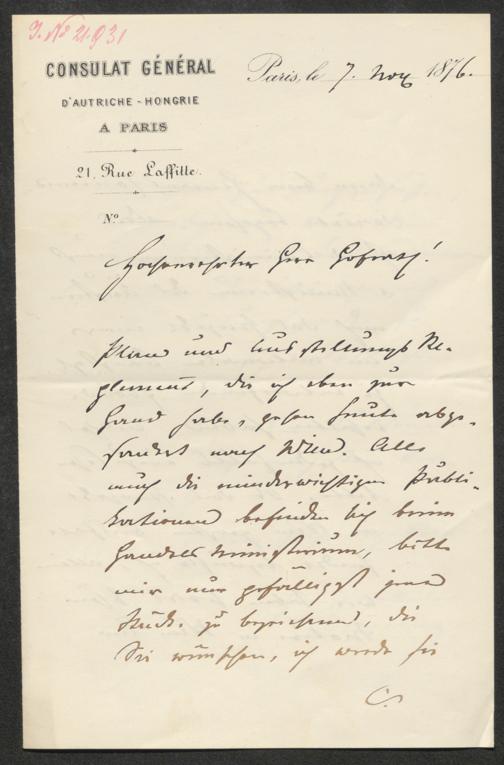 J. № 21931
CONSULAT GÉNÉRAL
D'AUTRICHE-HONGRIE
A PARIS
21, Rue Laffitte.
N.º
Paris, le 7. Nov 1876.
Hochverehrter Herr Hofrath!
Pläne und Ausstellungs Re-
glement, die ich eben zur
Hand habe, gehen heute abge-
sondert nach Wien. Alle
auch die minderwichtigen Publi-
kationen befinden sich beim
Handelsministerium, bitte
mir nur gefälligst jene
Stücke zu bezeichnen, die
Sie wünschen, ich werde sie